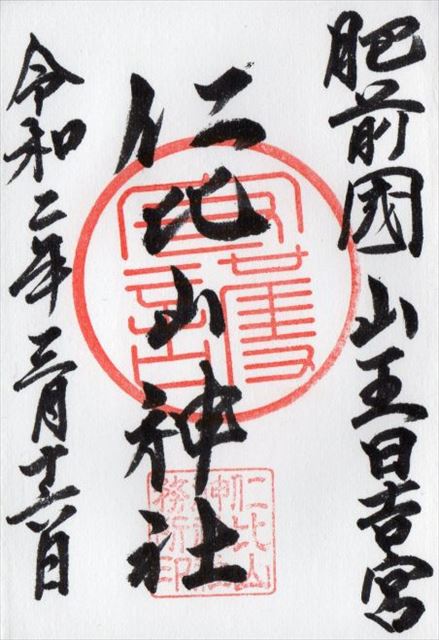 肥前國 山王日吉宮
仁比山神社
令和二年 三月十六日
仁比山
神社
務所印